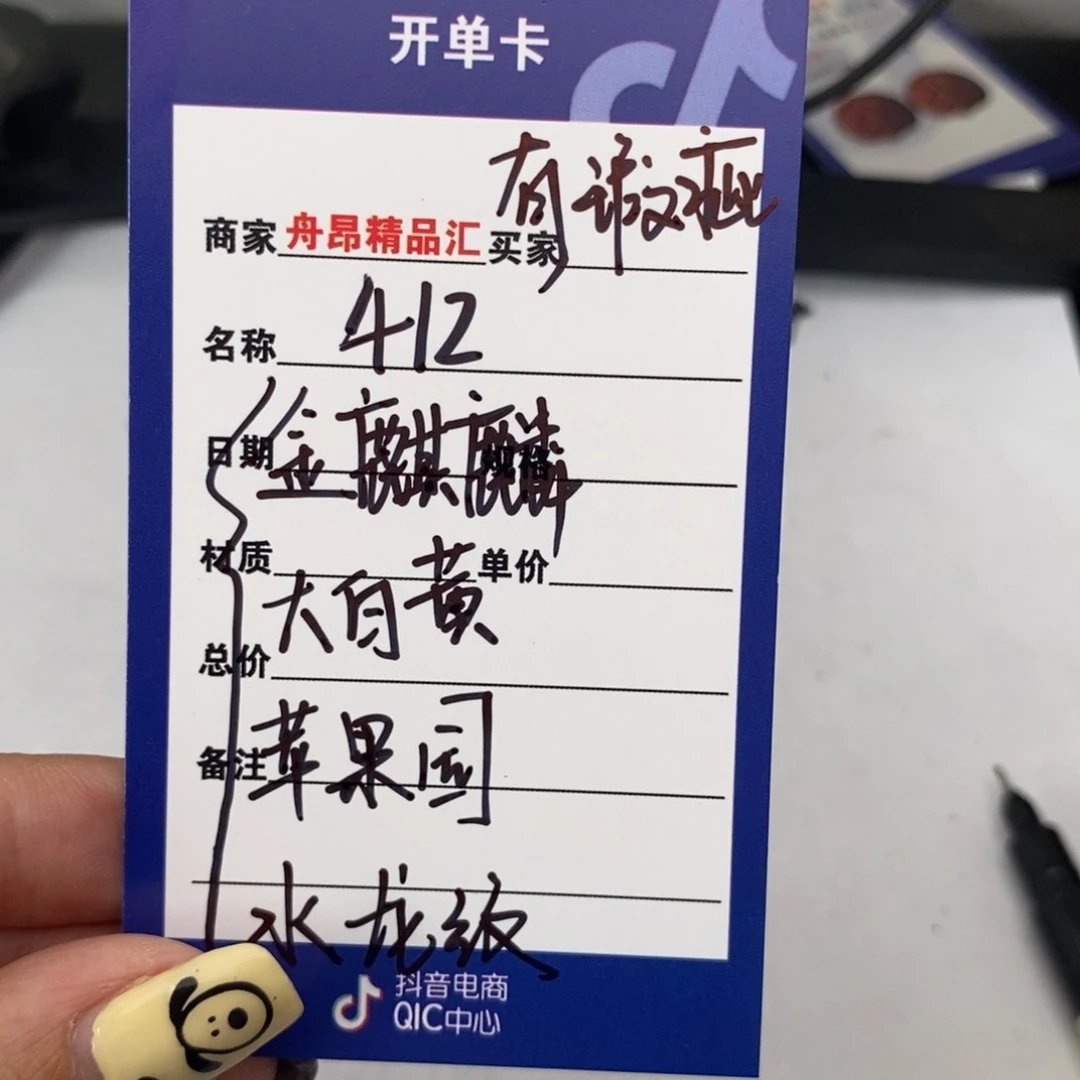 开单卡
有瑕疵
商家 舟昂精品汇 买家
名称 412
日期 金麒麟 规格
材质 单价
大白黄
总价
备注 苹果园
水龙纹
抖音电商
QIC中心